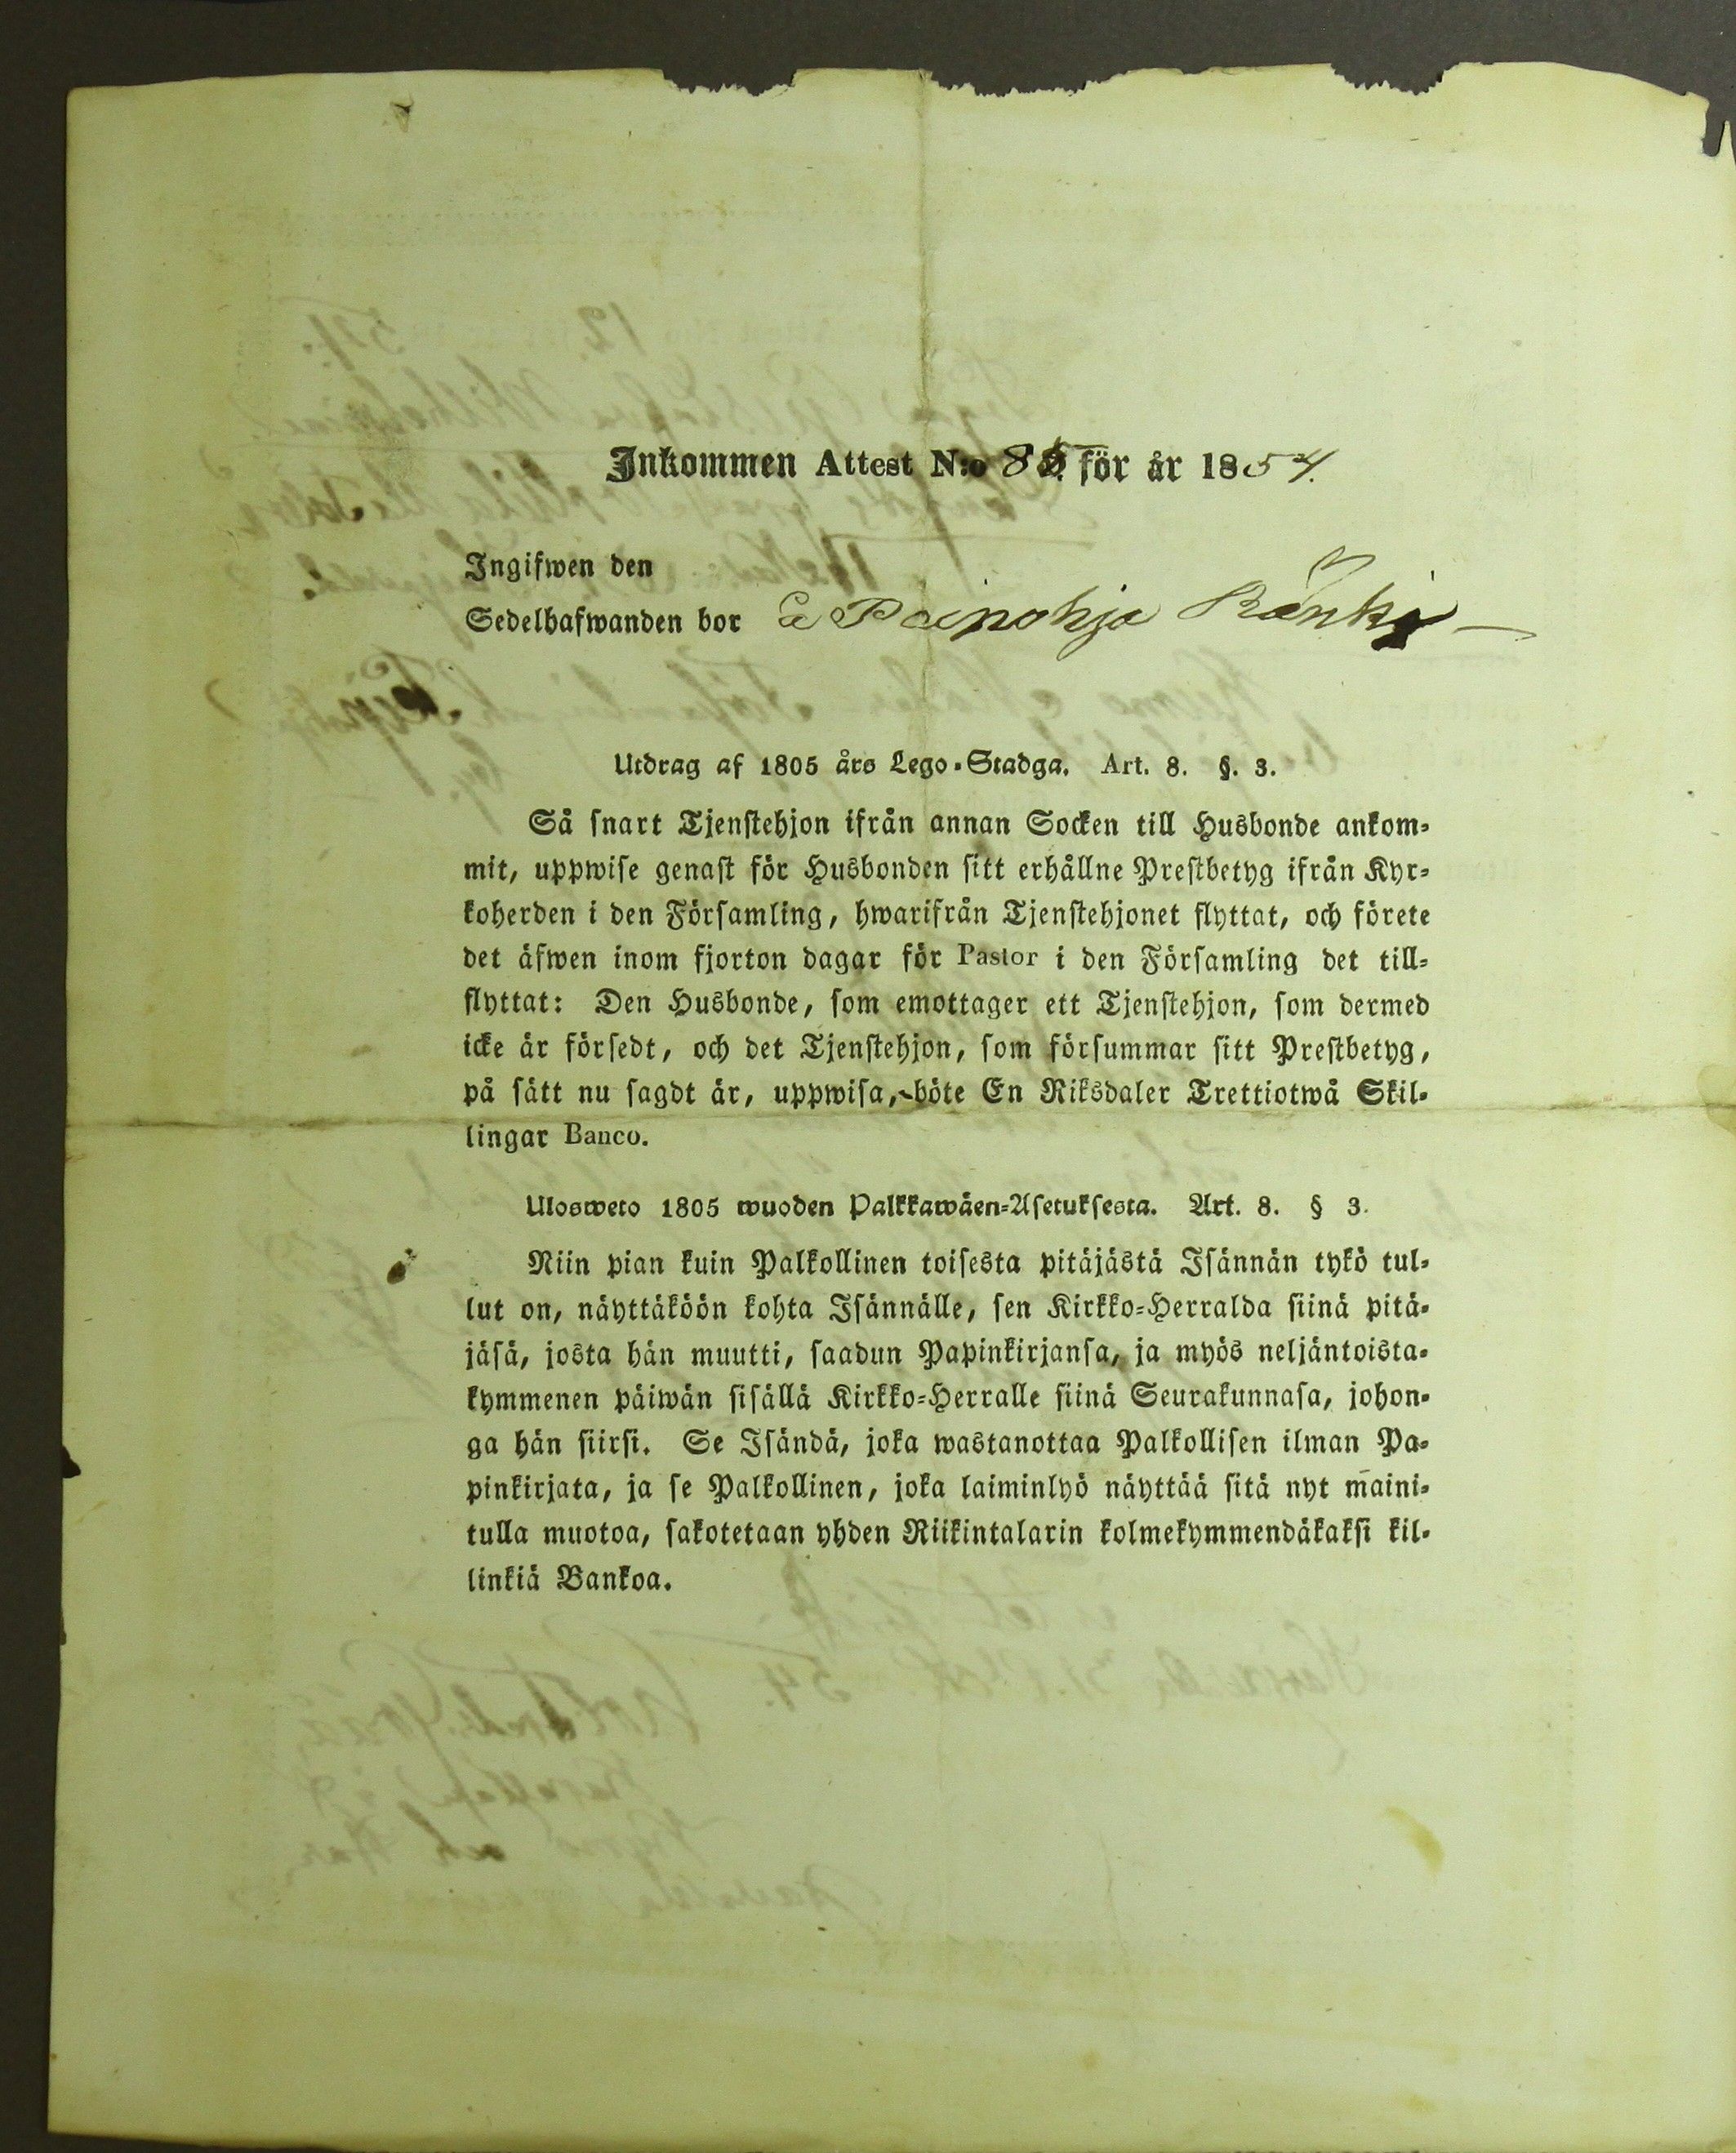 Inkommen Attest N:o 85 för år 1854.
Ingifwen den
Sedelhafwanden bor Peipohja Ränki
Utdrag af 1805 års Lego-Stadga. Art. 8. §. 3.
Så snart Tjenstehjon ifrån annan Socken till Husbonde ankom-
mit, uppwise genast för Husbonden sitt erhållne Prestbetyg ifrån Kyr-
koherden i den Församling, hwarifrån Tjenstehjonet flyttat, och förete
det äfwen inom fjorton dagar för Pastor i den Församling det till-
flyttat: Den Husbonde, som emottager ett Tjenstehjon, som dermed
icke är försedt, och det Tjenstehjon, som försummar sitt Prestbetyg,
på sätt nu sagdt är, uppwisa, böte En Riksdaler Trettiotwå Skil-
lingar Banco.
Ulosweto 1805 wuoden Palkkawäen-Asetuksesta. Art. 8. § 3.
Niin pian kuin Palkollinen toisesta pitäjästä Isännän tykö tul-
lut on, näyttäköön kohta Isännälle, sen Kirkko-Herralda siinä pitä-
jäsä, josta hän muutti, saadun Papinkirjansa, ja myös neljäntoista-
kymmenen päiwän sisällä Kirkko-Herralle siinä Seurakunnasa, johon-
ga hän siirsi. Se Isändä, joka wastanottaa Palkollisen ilman Pa-
pinkirjata, ja se Palkollinen, joka laiminlyö näyttää sitä nyt maini-
tulla muotoa, sakotetaan yhden Riikintalarin kolmekymmendäkaksi kil-
linkiä Bankoa.